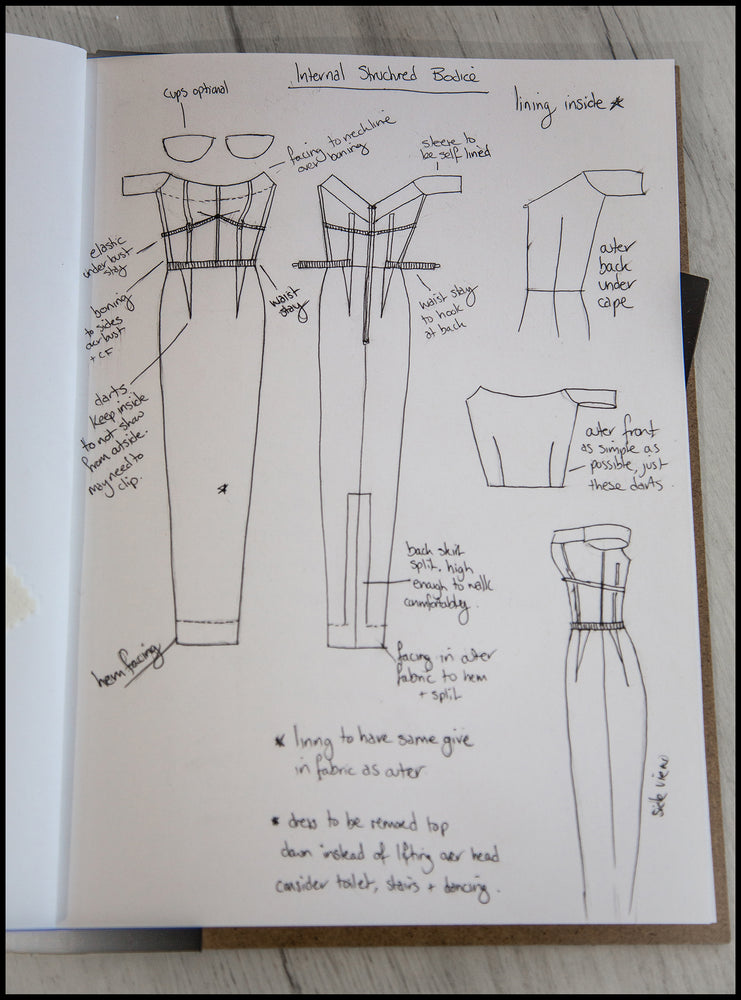 Internal Structured Bodice
cups optional
lining inside *
facing to neckline
over boning
sleeve to
be self lined
elastic
under bust
stay
boning
to sides
over bust
+ CF
waist
stay
waist stay
to hook
at back
outer
back
under
cape
darts
keep inside
to not show
hem outside.
may need to
clip.
*
outer front
as simple as
possible, just
these darts
back skirt
split, high
enough to walk
comfortably.
hem facing
facing in outer
fabric to hem
+ split
side view
* lining to have same give
in fabric as outer
* dress to be removed top
down instead of lifting over head
consider toilet, stairs + dancing.